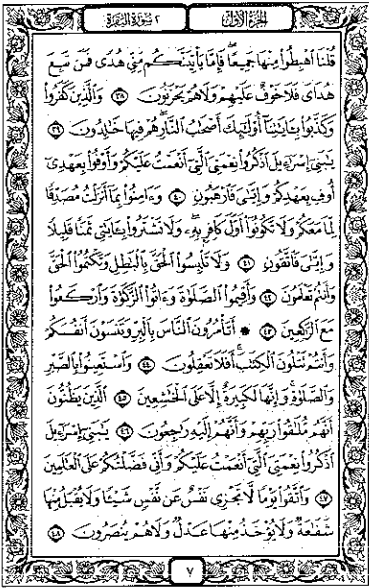 الجزء الأول
٢ سورة البقرة
قُلْنَا ٱهْبِطُوا۟ مِنْهَا جَمِيعًا ۖ فَإِمَّا يَأْتِيَنَّكُم مِّنِّى هُدًى فَمَن تَبِعَ
هُدَاىَ فَلَا خَوْفٌ عَلَيْهِمْ وَلَا هُمْ يَحْزَنُونَ ٣٨ وَٱلَّذِينَ كَفَرُوا۟
وَكَذَّبُوا۟ بِـَٔايَـٰتِنَآ أُو۟لَـٰٓئِكَ أَصْحَـٰبُ ٱلنَّارِ ۖ هُمْ فِيهَا خَـٰلِدُونَ ٣٩
يَـٰبَنِىٓ إِسْرَٰٓءِيلَ ٱذْكُرُوا۟ نِعْمَتِىَ ٱلَّتِىٓ أَنْعَمْتُ عَلَيْكُمْ وَأَوْفُوا۟ بِعَهْدِىٓ
أُوفِ بِعَهْدِكُمْ وَإِيَّـٰىَ فَٱرْهَبُونِ ٤٠ وَءَامِنُوا۟ بِمَآ أَنزَلْتُ مُصَدِّقًا
لِّمَا مَعَكُمْ وَلَا تَكُونُوٓا۟ أَوَّلَ كَافِرٍۭ بِهِۦ ۖ وَلَا تَشْتَرُوا۟ بِـَٔايَـٰتِى ثَمَنًا قَلِيلًا
وَإِيَّـٰىَ فَٱتَّقُونِ ٤١ وَلَا تَلْبِسُوا۟ ٱلْحَقَّ بِٱلْبَـٰطِلِ وَتَكْتُمُوا۟ ٱلْحَقَّ
وَأَنتُمْ تَعْلَمُونَ ٤٢ وَأَقِيمُوا۟ ٱلصَّلَوٰةَ وَءَاتُوا۟ ٱلزَّكَوٰةَ وَٱرْكَعُوا۟
مَعَ ٱلرَّٰكِعِينَ ٤٣ ۞ أَتَأْمُرُونَ ٱلنَّاسَ بِٱلْبِرِّ وَتَنسَوْنَ أَنفُسَكُمْ
وَأَنتُمْ تَتْلُونَ ٱلْكِتَـٰبَ ۚ أَفَلَا تَعْقِلُونَ ٤٤ وَٱسْتَعِينُوا۟ بِٱلصَّبْرِ
وَٱلصَّلَوٰةِ ۚ وَإِنَّهَا لَكَبِيرَةٌ إِلَّا عَلَى ٱلْخَـٰشِعِينَ ٤٥ ٱلَّذِينَ يَظُنُّونَ
أَنَّهُم مُّلَـٰقُوا۟ رَبِّهِمْ وَأَنَّهُمْ إِلَيْهِ رَٰجِعُونَ ٤٦ يَـٰبَنِىٓ إِسْرَٰٓءِيلَ
ٱذْكُرُوا۟ نِعْمَتِىَ ٱلَّتِىٓ أَنْعَمْتُ عَلَيْكُمْ وَأَنِّى فَضَّلْتُكُمْ عَلَى ٱلْعَـٰلَمِينَ
٤٧ وَٱتَّقُوا۟ يَوْمًا لَّا تَجْزِى نَفْسٌ عَن نَّفْسٍ شَيْـًٔا وَلَا يُقْبَلُ مِنْهَا
شَفَـٰعَةٌ وَلَا يُؤْخَذُ مِنْهَا عَدْلٌ وَلَا هُمْ يُنصَرُونَ ٤٨
٧